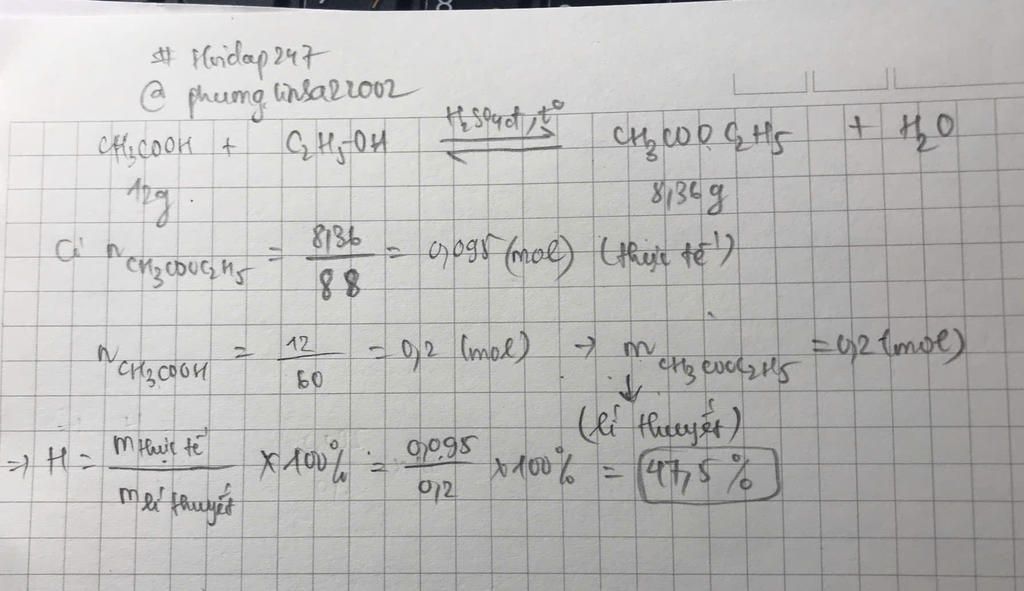 # Hoidap247
@ phuonglinsa22002
CH3COOH + C2H5-OH H2SO4đ, t° ⇌ CH3COOC2H5 + H2O
12g 8,36g
Có n CH3COOC2H5 = 8,36/88 = 0,095 (mol) (thực tế)
n CH3COOH = 12/60 = 0,2 (mol) → m CH3COOC2H5 = 0,2 (mol)
↓
(lí thuyết)
⇒ H = m thực tế / m lí thuyết × 100% = 0,095/0,2 × 100% = 47,5%